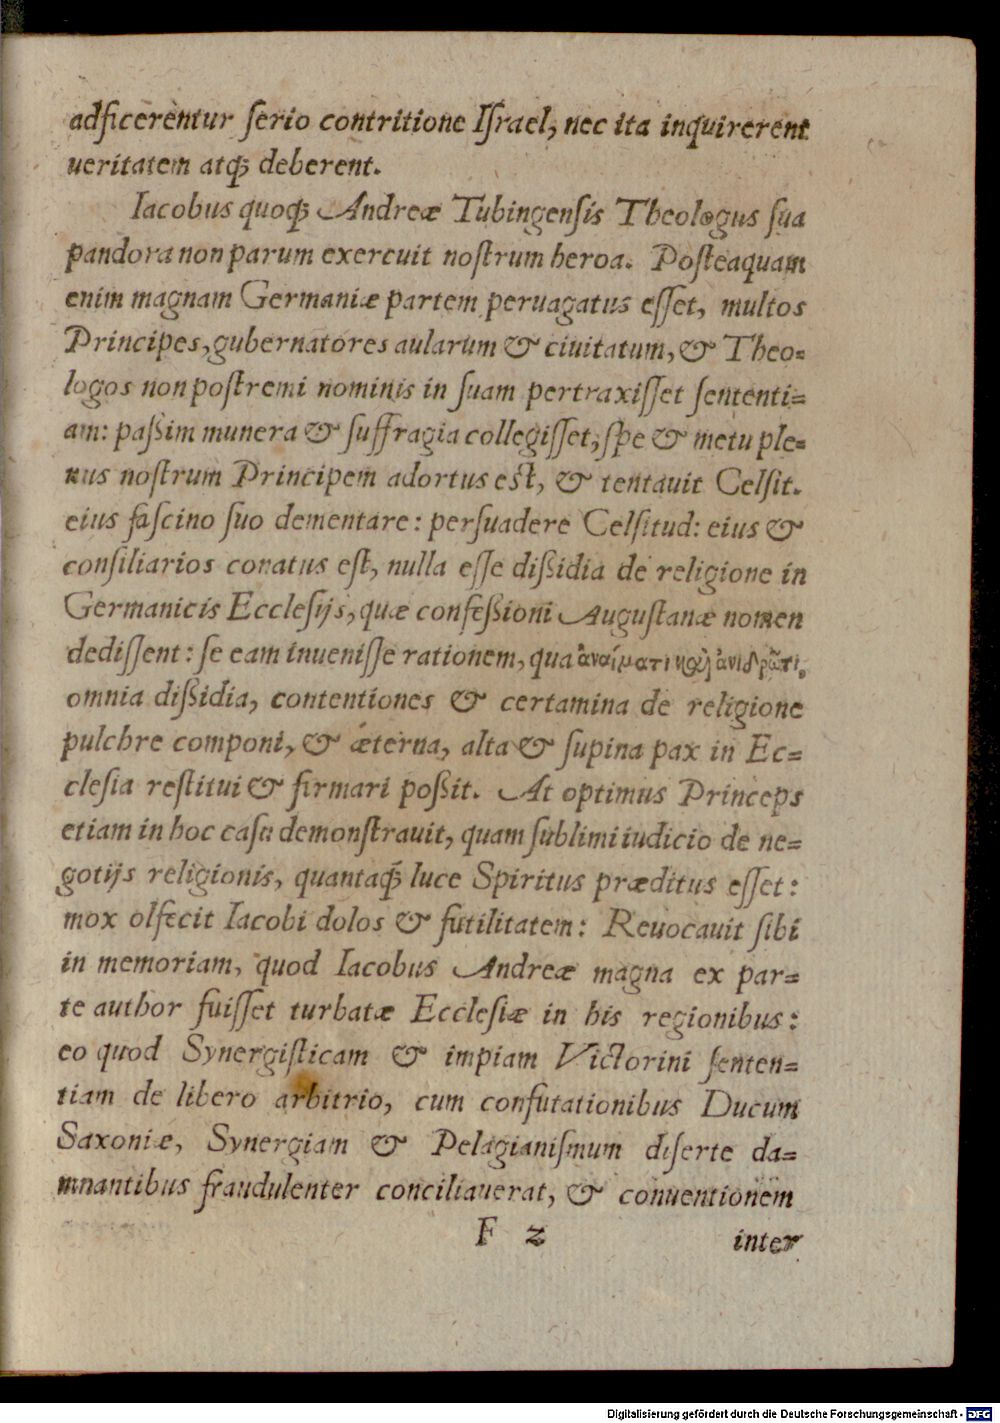 adficerentur ſerio contritione Iſrael, nec ita inquirerent
ueritatem atq́; deberent.
Iacobus quoq́; Andreæ Tubingenſis Theologus ſua
pandora non parum exercuit noſtrum heroa. Poſteaquam
enim magnam Germaniæ partem peruagatus eſſet, multos
Principes, gubernatores aularum & ciuitatum, & Theo=
logos non poſtremi nominis in ſuam pertraxiſſet ſententi=
am: paßim munera & ſuffragia collegiſſet, ſpe & metu ple=
nus noſtrum Principem adortus eſt, & tentauit Celſit.
eius faſcino ſuo dementare: perſuadere Celſitud: eius &
conſiliarios conatus eſt, nulla eſſe dißidia de religione in
Germanicis Eccleſijs, quæ confeßioni Auguſtanæ nomen
dediſſent: ſe eam inueniſſe rationem, qua ἀναίματι καὶ ἀνιδρῶτι,
omnia dißidia, contentiones & certamina de religione
pulchre componi, & æterna, alta & ſupina pax in Ec=
cleſia reſtitui & firmari poßit. At optimus Princeps
etiam in hoc caſu demonſtrauit, quam ſublimi iudicio de ne=
gotijs religionis, quantaq́; luce Spiritus præditus eſſet:
mox olfecit Iacobi dolos & futilitatem: Reuocauit ſibi
in memoriam, quod Iacobus Andreæ magna ex par=
te author fuiſſet turbatæ Eccleſiæ in his regionibus:
eo quod Synergiſticam & impiam Victorini ſenten=
tiam de libero arbitrio, cum confutationibus Ducum
Saxoniæ, Synergiam & Pelagianiſmum diſerte da=
mnantibus fraudulenter conciliauerat, & conuentionem
F 2
inter
Digitalisierung gefördert durch die Deutsche Forschungsgemeinschaft - DFG